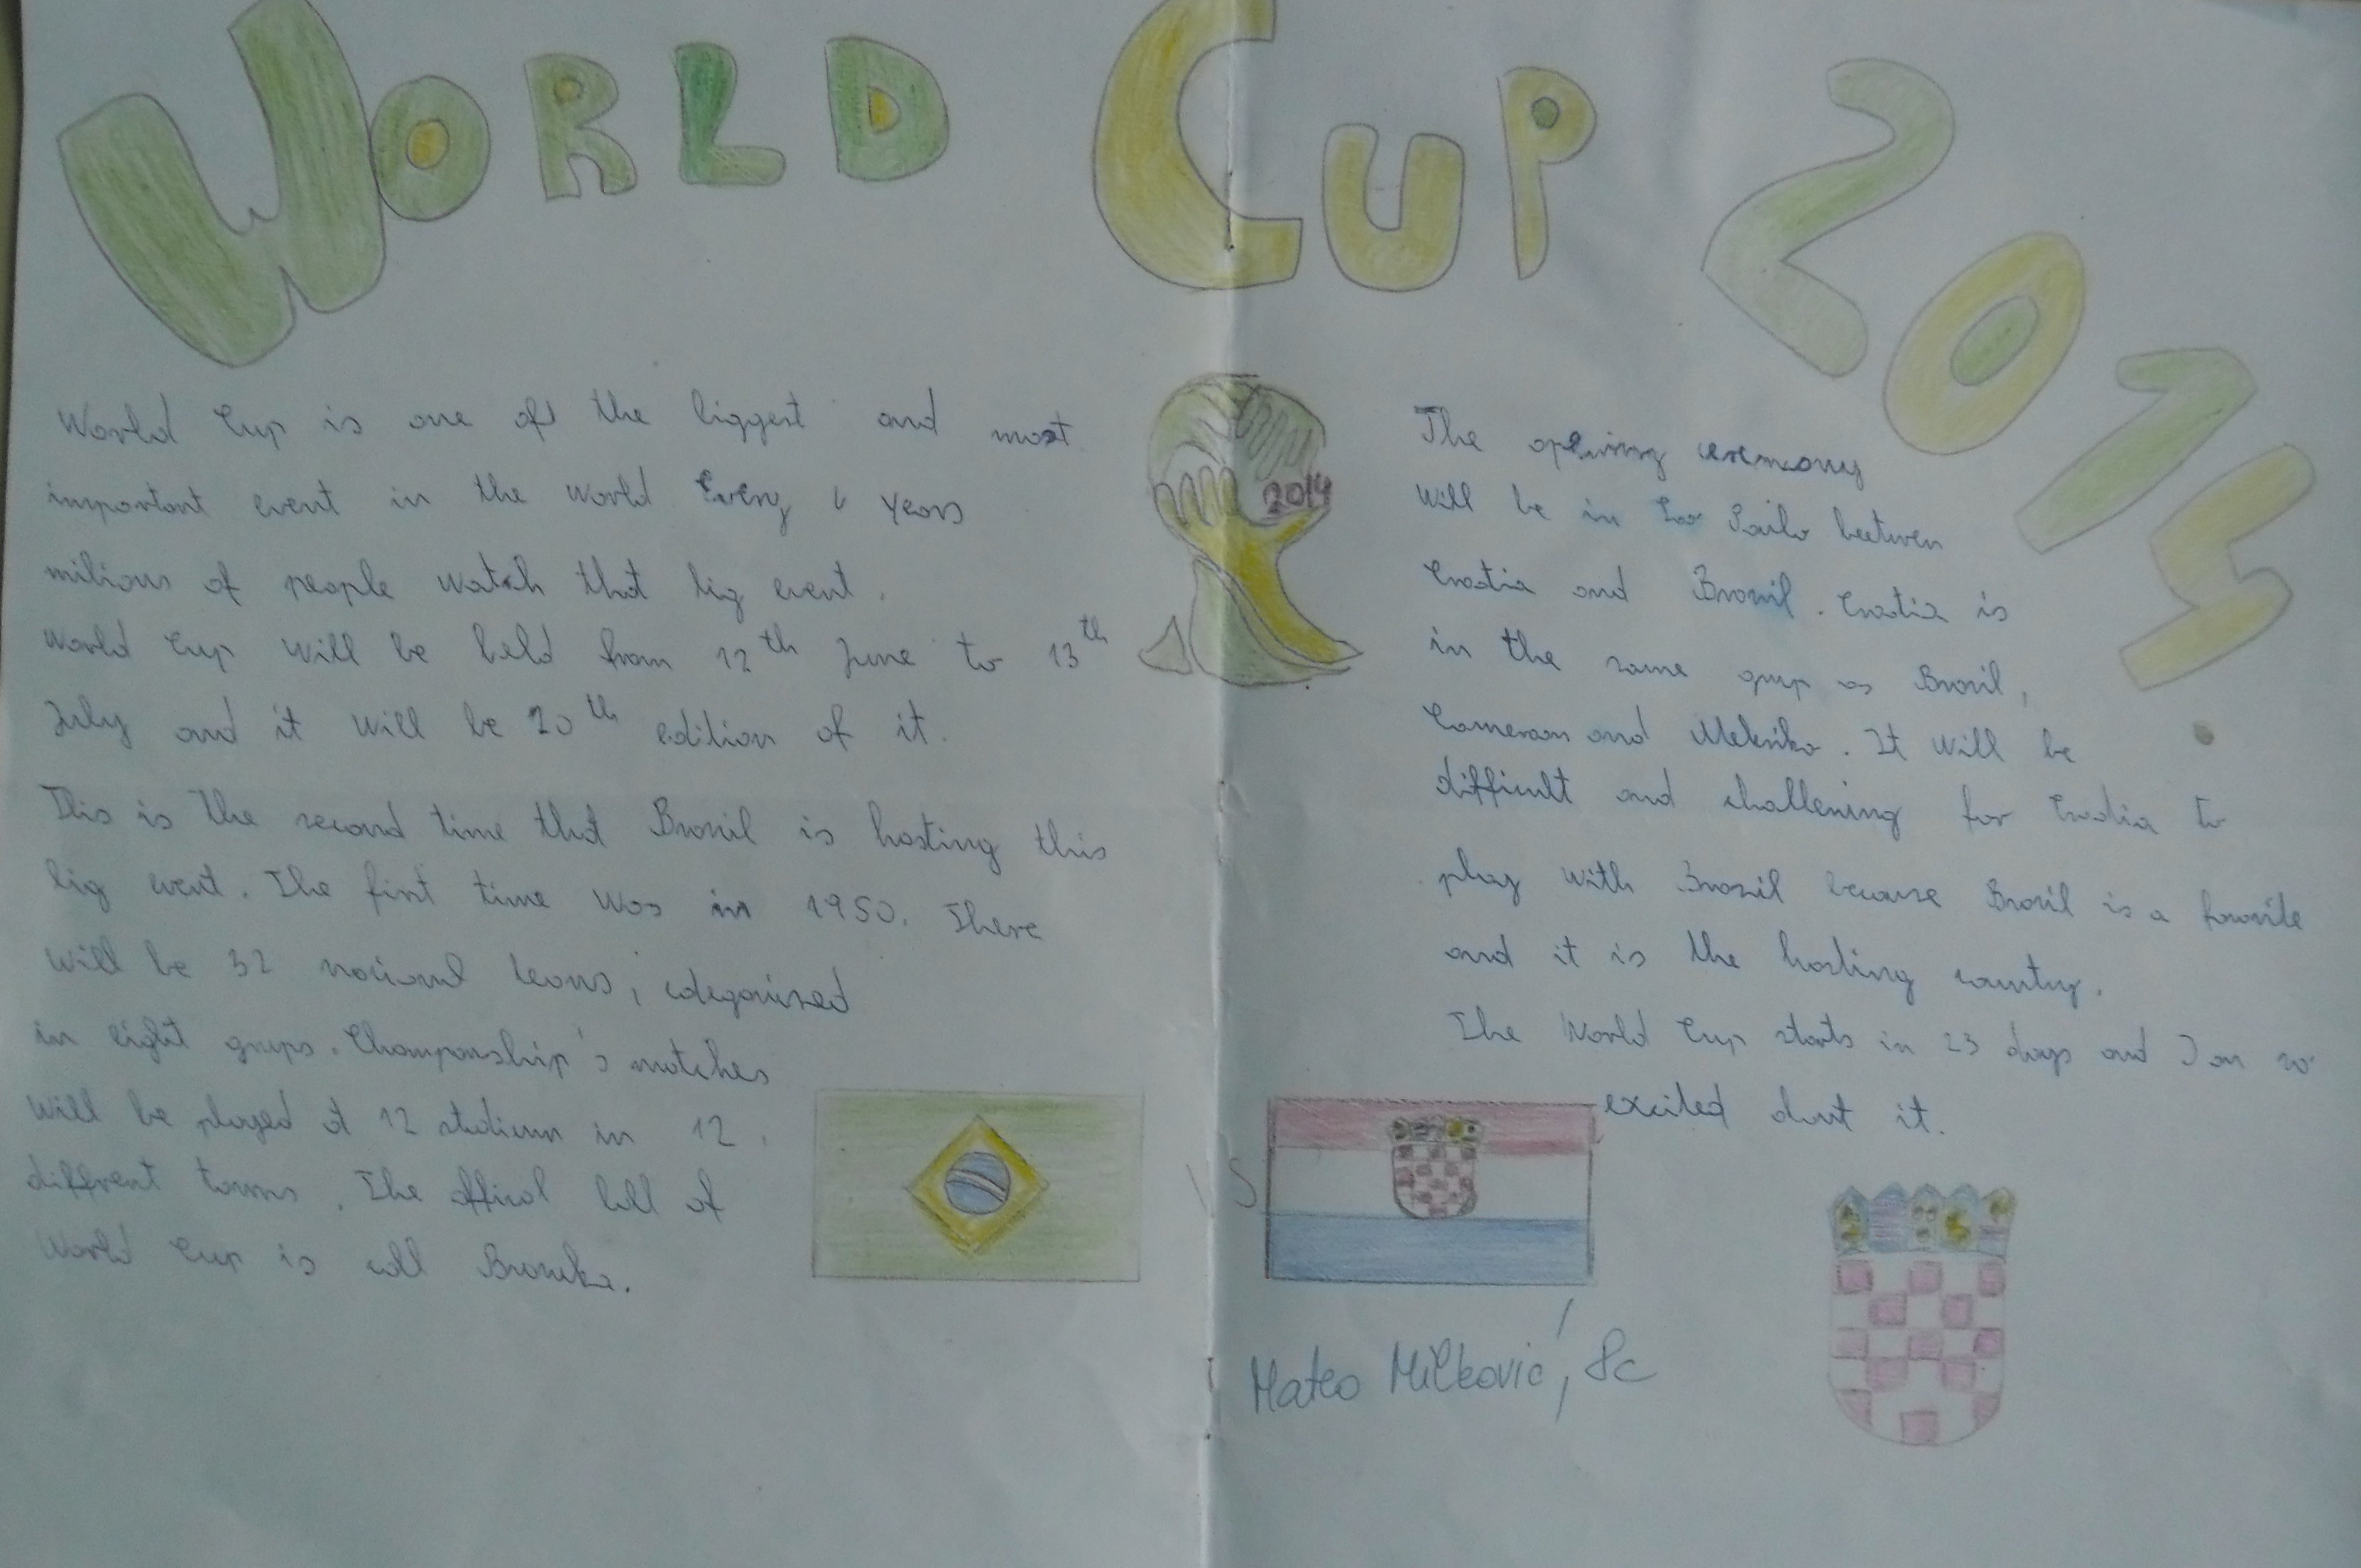 WORLD CUP 2014
World Cup is one of the biggest and most
important event in the world Every 4 years
milions of people watch that big event.
World Cup will be held from 12th June to 13th
July and it will be 20th edition of it.
This is the second time that Brazil is hosting this
big event. The first time was in 1950. There
will be 32 nacional teams, categorized
in eight grups. Championship's matches
will be played at 12 stadium in 12
different towns. The offical ball of
World Cup is call Brazuka.
2014
The opening ceremony
will be in Sao Pailo beetwen
Croatia and Brazil. Croatia is
in the same grup as Brazil,
Cameroon and Meksiko. It will be
difficult and challening for Croatia to
play with Brazil because Brazil is a favorite
and it is the hosting country.
The World Cup starts in 23 days and I am so
excited about it.
VS
Mateo Milković, 8c